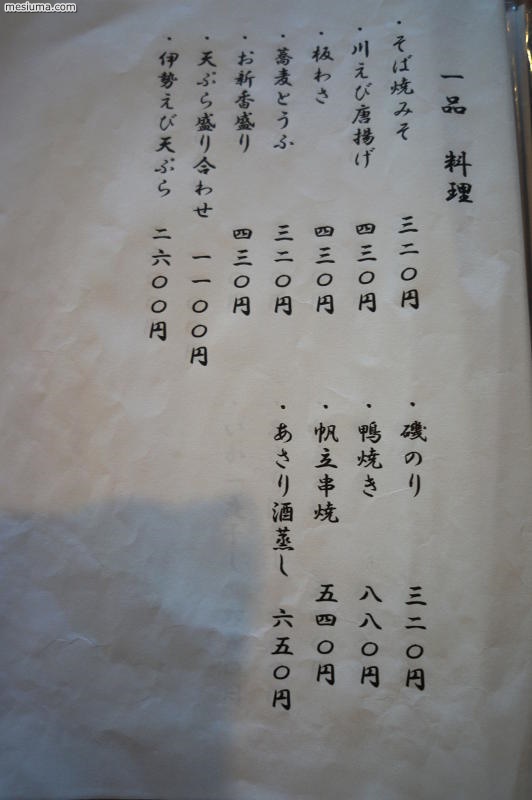 mesiuma.com
一品 料理
・そば焼みそ 三二〇円
・川えび唐揚げ 四三〇円
・板わさ 四三〇円
・蕎麦とうふ 三二〇円
・お新香盛り 四三〇円
・天ぷら盛り合わせ 一一〇〇円
・伊勢えび天ぷら 二六〇〇円
・磯のり 三二〇円
・鴨焼き 八八〇円
・帆立串焼 五四〇円
・あさり酒蒸し 六五〇円